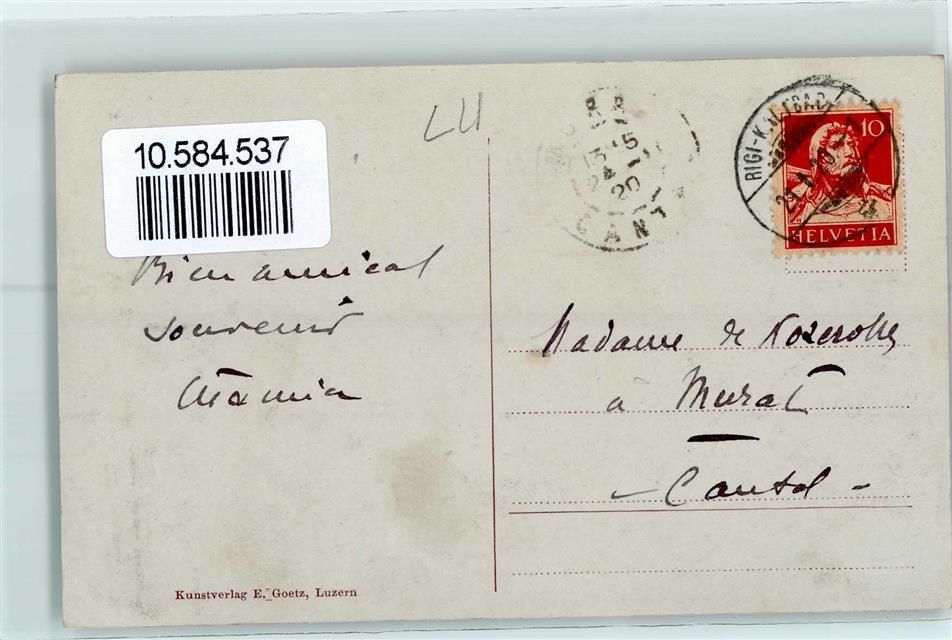 10.584.537
LU
RIGI-KALTBAD
10
HELVETIA
20
CANT
Bien amical
souvenir
Madame de
à Murat
- Cantal -
Kunstverlag E. Goetz, Luzern